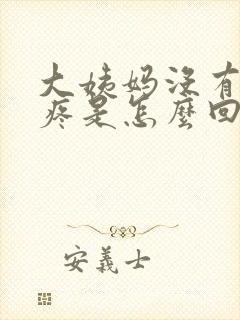 大姨妈没有
疼是怎麼回
安義士